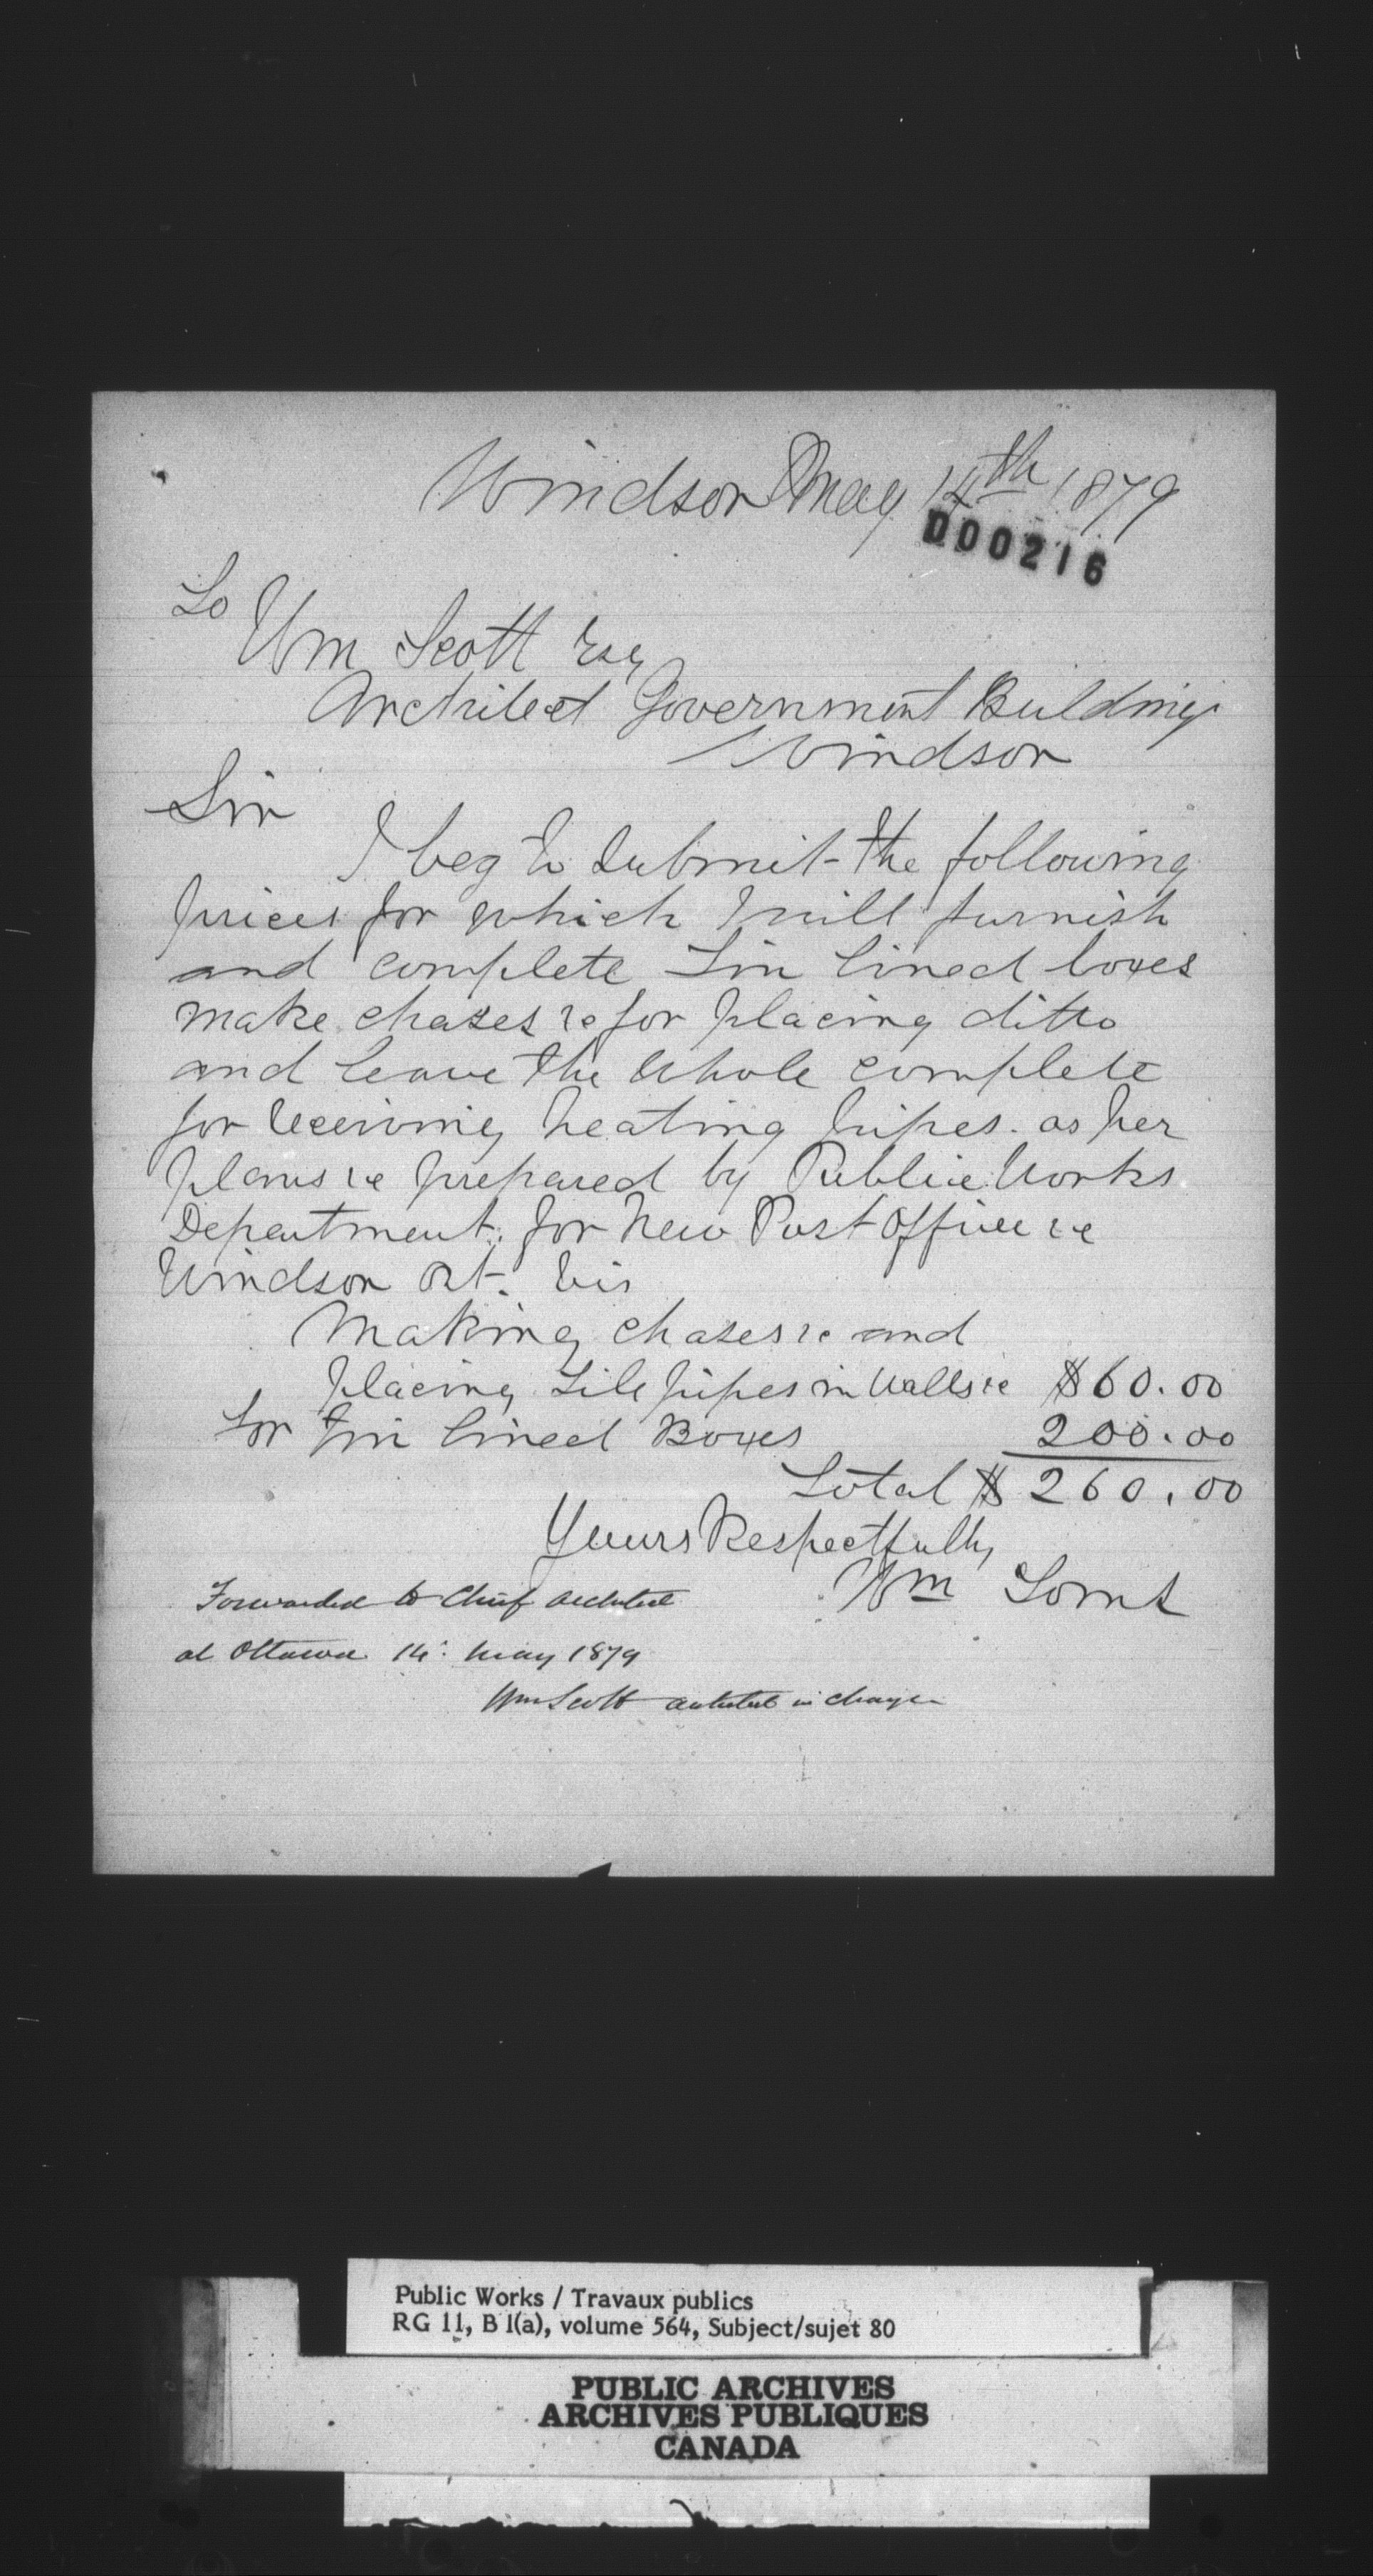 Windsor May 14th 1879
000216
To
Wm Scott Esq
Architect Government Buildings
Windsor
Sir
I beg to submit the following
prices for which I will furnish
and complete Tin lined boxes
make chases &c for placing ditto
and leave the whole complete
for receiving heating pipes. as per
plans &c prepared by Public Works
Department, for New Post Office &c
Windsor Ont. viz
Making chases &c and
placing Tile pipes in walls &c $60.00
For Tin lined Boxes 200.00
Total $260.00
Yours Respectfully
Wm
Forwarded to Chief Architect
at Ottawa 14: May 1879
Wm Scott architect in charge
Public Works / Travaux publics
RG 11, B 1(a), volume 564, Subject/sujet 80
PUBLIC ARCHIVES
ARCHIVES PUBLIQUES
CANADA